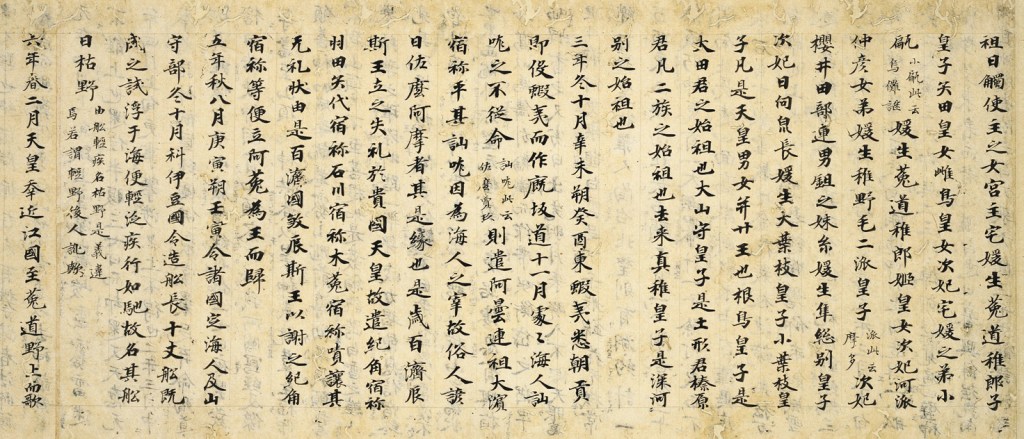 祖日觸使主之女宮主宅媛生菟道稚郎子
皇子矢田皇女雌鳥皇女次妃宅媛之弟小
甂小甂此云烏儺謎媛生菟道稚郎姬皇女次妃河派
仲彥女弟媛生稚野毛二派皇子派此云摩多次妃
櫻井田部連男鉏之妹糸媛生隼総别皇子
次妃日向泉長媛生大葉枝皇子小葉枝皇
子凡是天皇男女并廿王也根鳥皇子是
大田君之始祖也大山守皇子是土形君榛原
君凡二族之始祖也去来真稚皇子是深河
别之始祖也
三年冬十月辛未朔癸酉東蝦夷悉朝貢
即役蝦夷而作廐坂道十一月處々海人訕
哤之不從命訕哤此云佐麼賣玖則遣阿曇連祖大濱
宿祢平其訕哤因為海人之宰故俗人諺
曰佐麼阿摩者其是緣也是歳百濟辰
斯王立之失礼於貴國天皇故遣紀角宿祢
羽田矢代宿祢石川宿祢木菟宿祢嘖讓其
无礼狀由是百濟國殺辰斯王以謝之紀角
宿祢等便立阿菟為王而歸
五年秋八月庚寅朔壬寅令諸國定海人及山
守部冬十月科伊豆國令造舩長十丈舩既
成之試浮于海便輕泛疾行如馳故名其舩
曰枯野由舩輕疾名枯野是義違焉若謂輕野後人訛歟
六年春二月天皇幸近江國至菟道野上而歌